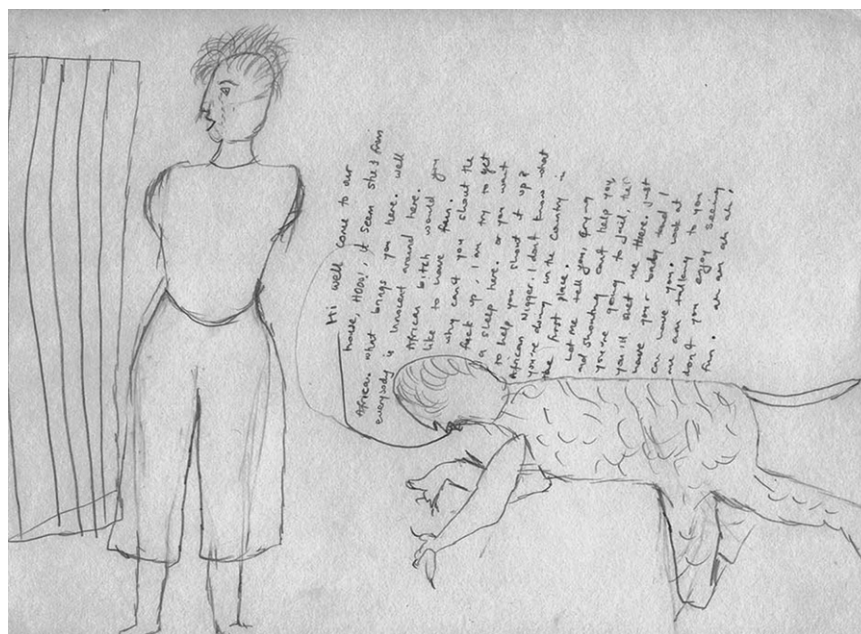 Hi well come to our
house, HOOO!. it seem she's from
Africa. what brings you here. well
everybody is innocent around here.
African bitch would you
like to have fun.
why can't you shout the
fuck up, I am try to get
a sleep here. or you want
to help you shout it up?
African Nigger. I don't know what
you're doing in the Country in
the first place.
Let me tell you, crying
and shouting can't help you,
you're going to jail,
you'll me there. just
have your body I
can have you. look at
me am talking to you
don't you enjoy seeing
fun. ah an ah ah!